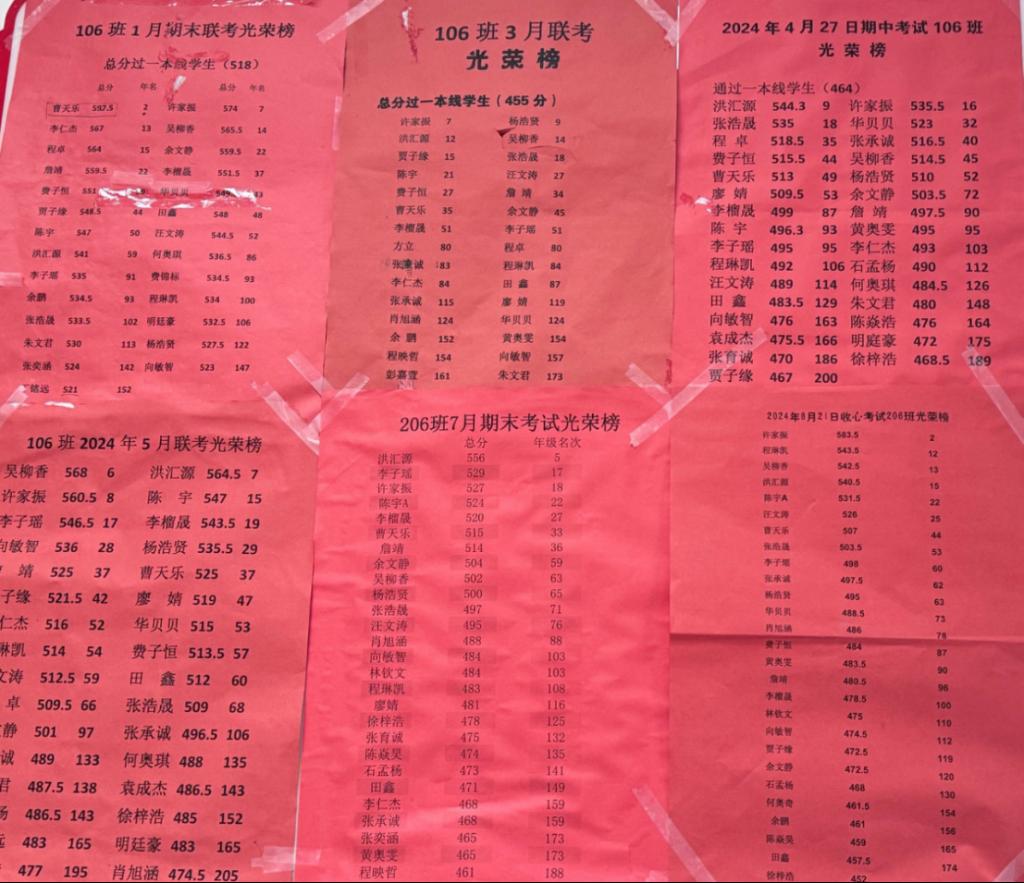 106 班 1 月期末联考光荣榜
总分过一本线学生（518）
总分 年名 总分 年名
曹天乐 597.5 2 许家振 574 7
李仁杰 567 13 吴柳香 565.5 14
程卓 564 15 余文静 559.5 22
詹靖 559.5 22 李榴晟 551.5 37
费子恒 551 华贝贝
贾子缘 548.5 44 田鑫 548 48
陈宇 547 50 汪文涛 544.5 52
洪汇源 541 59 何奥琪 536.5 86
李子瑶 535 91 费锦标 534.5 93
余鹏 534.5 93 程琳凯 534 100
张浩晟 533.5 102 明廷豪 532.5 106
朱文君 530 113 杨浩贤 527.5 122
张奕涵 524 142 向敏智 523 147
铭远 521 152
106 班 3 月联考
光 荣 榜
总分过一本线学生（455 分）
许家振 7 杨浩贤 9
洪汇源 12 吴柳香 14
贾子缘 15 张浩晟 18
陈宇 21 汪文涛 27
费子恒 27 詹 靖 34
曹天乐 35 余文静 45
李榴晟 51 李子瑶 51
方立 80 程卓 80
张 诚 83 程琳凯 84
李仁杰 84 田 鑫 87
张承诚 115 廖 婧 119
肖旭涵 124 华贝贝 124
余 鹏 152 黄奥雯 154
程映哲 154 向敏智 157
彭嘉萱 161 朱文君 173
2024 年 4 月 27 日期中考试 106 班
光 荣 榜
通过一本线学生（464）
洪汇源 544.3 9 许家振 535.5 16
张浩晟 535 18 华贝贝 523 32
程 卓 518.5 35 张承诚 516.5 40
费子恒 515.5 44 吴柳香 514.5 45
曹天乐 513 49 杨浩贤 510 52
廖 婧 509.5 53 余文静 503.5 72
李榴晟 499 87 詹 靖 497.5 90
陈 宇 496.3 93 黄奥雯 495 95
李子瑶 495 95 李仁杰 493 103
程琳凯 492 106 石孟杨 490 112
汪文涛 489 114 何奥琪 484.5 126
田 鑫 483.5 129 朱文君 480 148
向敏智 476 163 陈焱浩 476 164
袁成杰 475.5 166 明庭豪 472 175
张育诚 470 186 徐梓浩 468.5 189
贾子缘 467 200
106 班 2024 年 5 月联考光荣榜
吴柳香 568 6 洪汇源 564.5 7
许家振 560.5 8 陈 宇 547 15
李子瑶 546.5 17 李榴晟 543.5 19
向敏智 536 28 杨浩贤 535.5 29
靖 525 37 曹天乐 525 37
子缘 521.5 42 廖 婧 519 47
仁杰 516 52 华贝贝 515 53
琳凯 514 54 费子恒 513.5 57
文涛 512.5 59 田 鑫 512 60
卓 509.5 66 张浩晟 509 68
静 501 97 张承诚 496.5 106
诚 489 133 何奥琪 488 135
君 487.5 138 袁成杰 486.5 143
杨 486.5 143 徐梓浩 485 152
远 483 165 明廷豪 483 165
477 195 肖旭涵 474.5 205
206班7月期末考试光荣榜
总分 年级名次
洪汇源 556 5
李子瑶 529 17
许家振 527 18
陈宇A 524 22
李榴晟 520 27
曹天乐 515 33
詹靖 514 36
余文静 504 59
吴柳香 502 63
杨浩贤 500 65
张浩晟 497 71
汪文涛 495 76
肖旭涵 488 88
向敏智 484 103
林钦文 484 103
程琳凯 483 108
廖婧 481 116
徐梓浩 478 125
张育诚 475 132
陈焱昊 474 135
石孟杨 473 141
田鑫 471 149
李仁杰 468 159
张承诚 468 159
张奕涵 465 173
黄奥雯 465 173
程映哲 461 188
2024年8月21日收心考试206班光荣榜
许家振 583.5 2
程琳凯 543.5 12
吴柳香 542.5 13
洪汇源 540.5 15
陈宇A 531.5 22
汪文涛 526 25
曹天乐 507 44
张浩晟 503.5 53
李子瑶 498 60
张承诚 497.5 62
杨浩贤 495 63
华贝贝 488.5 73
肖旭涵 486 78
费子恒 484 87
黄奥雯 483.5 90
詹靖 480.5 96
李榴晟 478.5 100
林钦文 475 110
向敏智 474.5 112
贾子缘 472.5 119
余文静 472.5 120
石孟杨 468 130
何奥奇 461.5 154
余鹏 461 156
陈焱昊 459 165
田鑫 457.5 174
徐梓浩 452